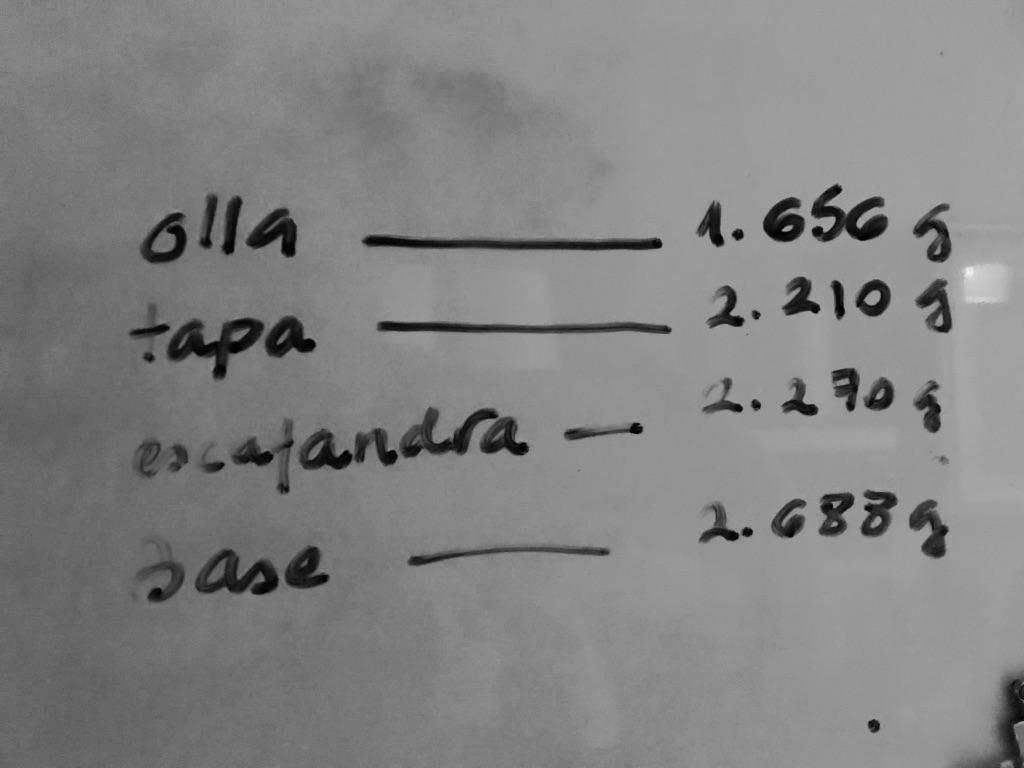 olla — 1.656 g
tapa — 2.210 g
escafandra — 2.270 g
base — 2.688 g